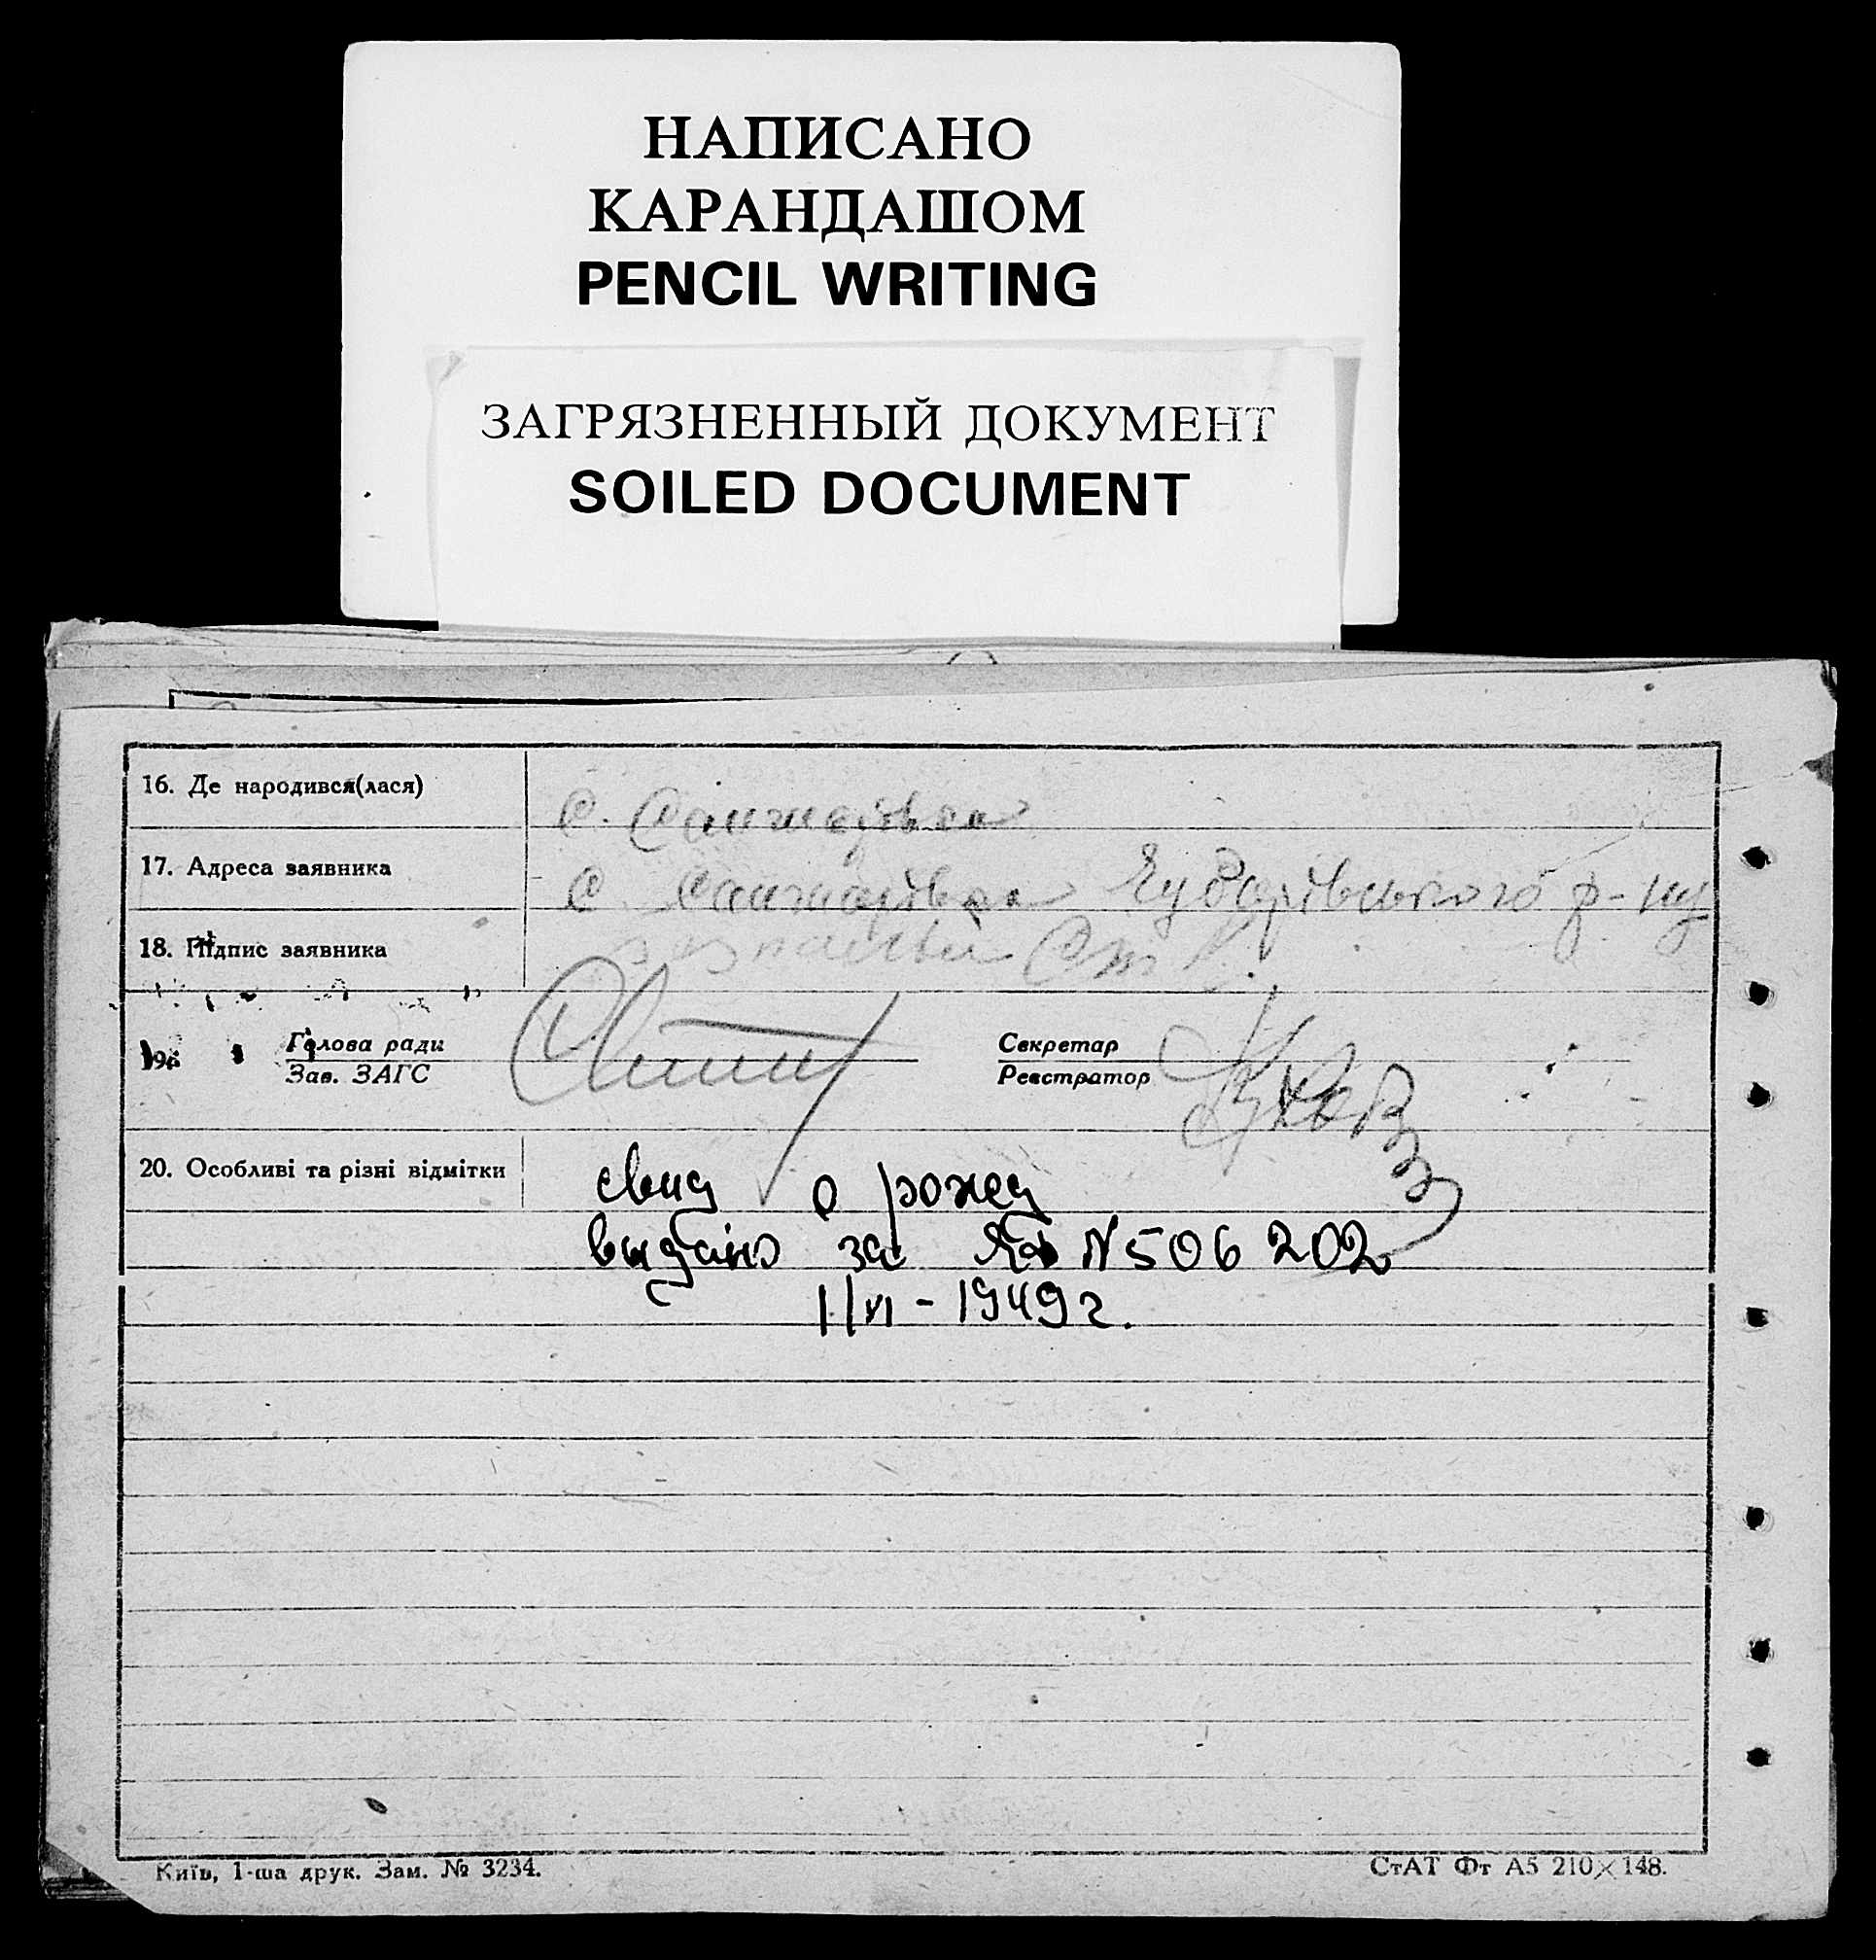 НАПИСАНО
КАРАНДАШОМ
PENCIL WRITING
ЗАГРЯЗНЕННЫЙ ДОКУМЕНТ
SOILED DOCUMENT
16. Де народився(лася)
с. Санжарівка
17. Адреса заявника
с. Санжарівка р-ну
18. Підпис заявника
Голова ради
Зав. ЗАГС
Секретар
Реєстратор
20. Особливі та різні відмітки
свид о рожд
выдано за N 506202
1/VI - 1949 г.
Київ, 1-ша друк. Зам. № 3234.
СтАТ Фт А5 210×148.